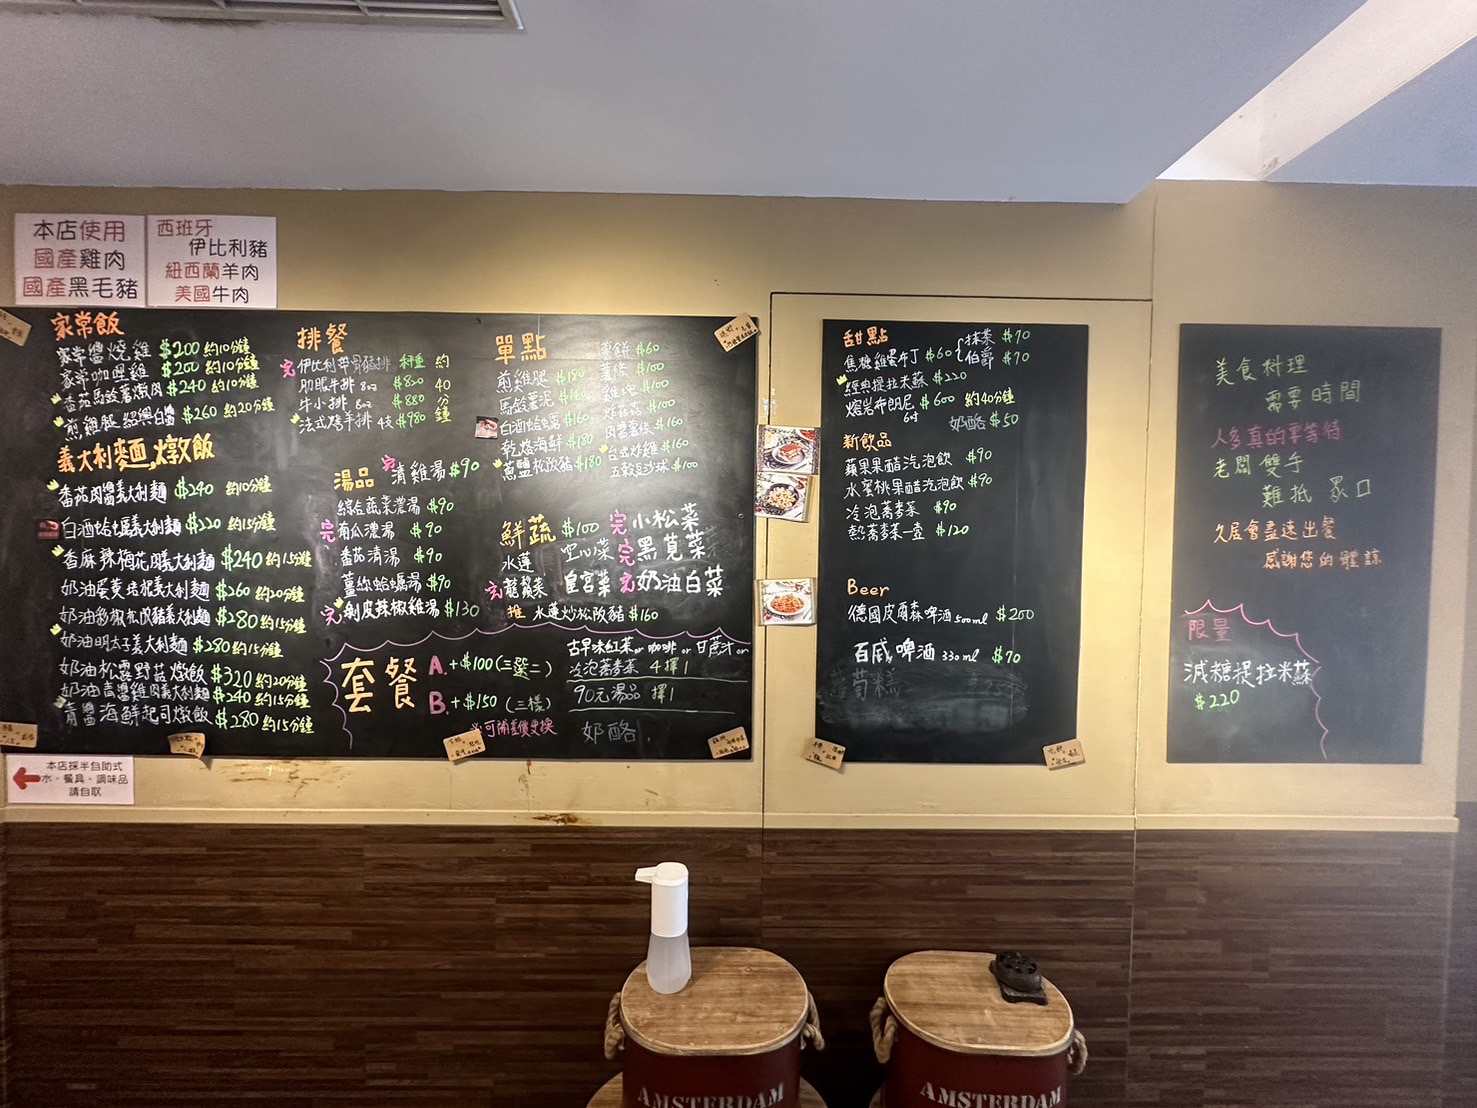 本店使用
國產雞肉
國產黑毛豬
西班牙
伊比利豬
紐西蘭羊肉
美國牛肉
家常飯
家常醬燒雞 $200 約10分鐘
家常咖哩雞 $200 約10分鐘
番茄馬鈴薯燉肉 $240 約10分鐘
煎雞腿 紹興白醬 $260 約20分鐘
義大利麵,燉飯
番茄肉醬義大利麵 $240 約10分鐘
白酒蛤蠣義大利麵 $220 約15分鐘
香麻辣梅花肉義大利麵 $240 約15分鐘
奶油蛋黃培根義大利麵 $260 約20分鐘
奶油彩椒松阪豬義大利麵 $280 約15分鐘
奶油明太子義大利麵 $280 約15分鐘
奶油松露野菇燉飯 $320 約20分鐘
奶油青醬雞肉義大利麵 $240 約15分鐘
青醬海鮮起司燉飯 $280 約15分鐘
排餐
完 伊比利帶骨豬排 秤重 約
肋眼牛排 8oz $820 40
牛小排 8oz $880 分
法式烤羊排 4支 $980 鐘
湯品 完 清雞湯 $90
綜合蔬菜濃湯 $90
完 南瓜濃湯 $90
番茄清湯 $90
薑絲蛤蠣湯 $90
完 剝皮辣椒雞湯 $130
單點
煎雞腿 $180
馬鈴薯泥 $140
白酒蛤蠣 $160
乾煸海鮮 $180
蔥鹽松阪豬 $180
薯餅 $60
薯條 $100
雞塊 $100
$100
肉醬薯條 $160
台式炸雞 $160
$100
鮮蔬 $100 完 小松菜
水蓮 空心菜 完 黑莧菜
完 龍鬚菜 皇宮菜 完 奶油白菜
推 水蓮炒松阪豬 $160
套餐
A. +$100 (三選二)
B. +$150 (三樣)
可補差價更換
古早味紅茶or咖啡or甘蔗汁or
冷泡蕎麥茶 4擇1
90元湯品 擇1
奶酪.
本店採半自助式
水、餐具、調味品
請自取
甜點
焦糖雞蛋布丁 $60 { 抹茶 $70
伯爵 $70
經典提拉米蘇 $220
熔岩布朗尼 $600 約40分鐘
6吋 奶酪 $50
新飲品
蘋果果醋汽泡飲 $90
水蜜桃果醋汽泡飲 $90
冷泡蕎麥茶 $90
熱蕎麥茶一壺 $120
Beer
德國皮爾森啤酒 500ml $200
百威啤酒 330ml $70
美食料理
需要時間
人多真的要等待
老闆雙手
難抵眾口
久居會盡速出餐
感謝您的體諒
限量
減糖提拉米蘇
$220
AMSTERDAM
AMSTERDAM